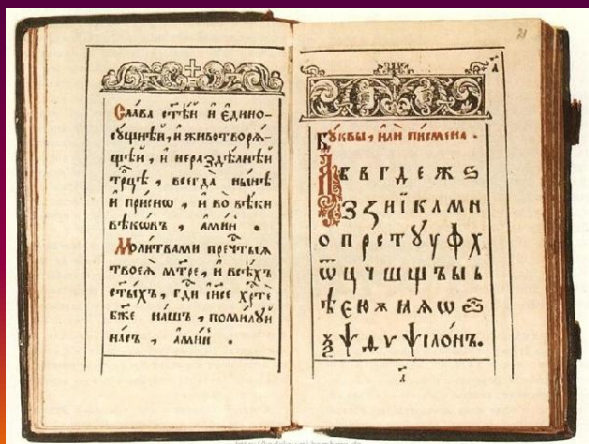 Сла́ва ст҃ѣ́й и҆ є҆дино-
сꙋ́щнѣй, и҆ животворѧ́-
щей, и҆ нераздѣ́лнѣй
трⷪ҇цѣ, всегда̀ ны́нѣ
и҆ при́снѡ, и҆ во вѣ́ки
вѣкѡ́въ, а҆ми́нь.
Моли́твами пречⷭ҇тыѧ
твоеѧ̀ мт҃ре, и҆ всѣ́хъ
ст҃ы́хъ, гдⷭ҇и і҆и҃се хрⷭ҇те
бж҃е на́шъ, поми́лꙋй
на́съ, а҆ми́нь.
21
Бꙋ́квы, и҆лѝ писмена̀.
А Б В Г Д Е Ж Ѕ
З Ꙁ И Ї К Л М Н
О П Р С Т Ꙋ У Ф Х
Ѿ Ц Ч Ш Щ Ъ Ы Ь
Ѣ Є Ю Ѫ Ꙗ Ѧ Ѡ
Ѯ Ѱ Ѳ Ѵ Ѱїло́нъ.